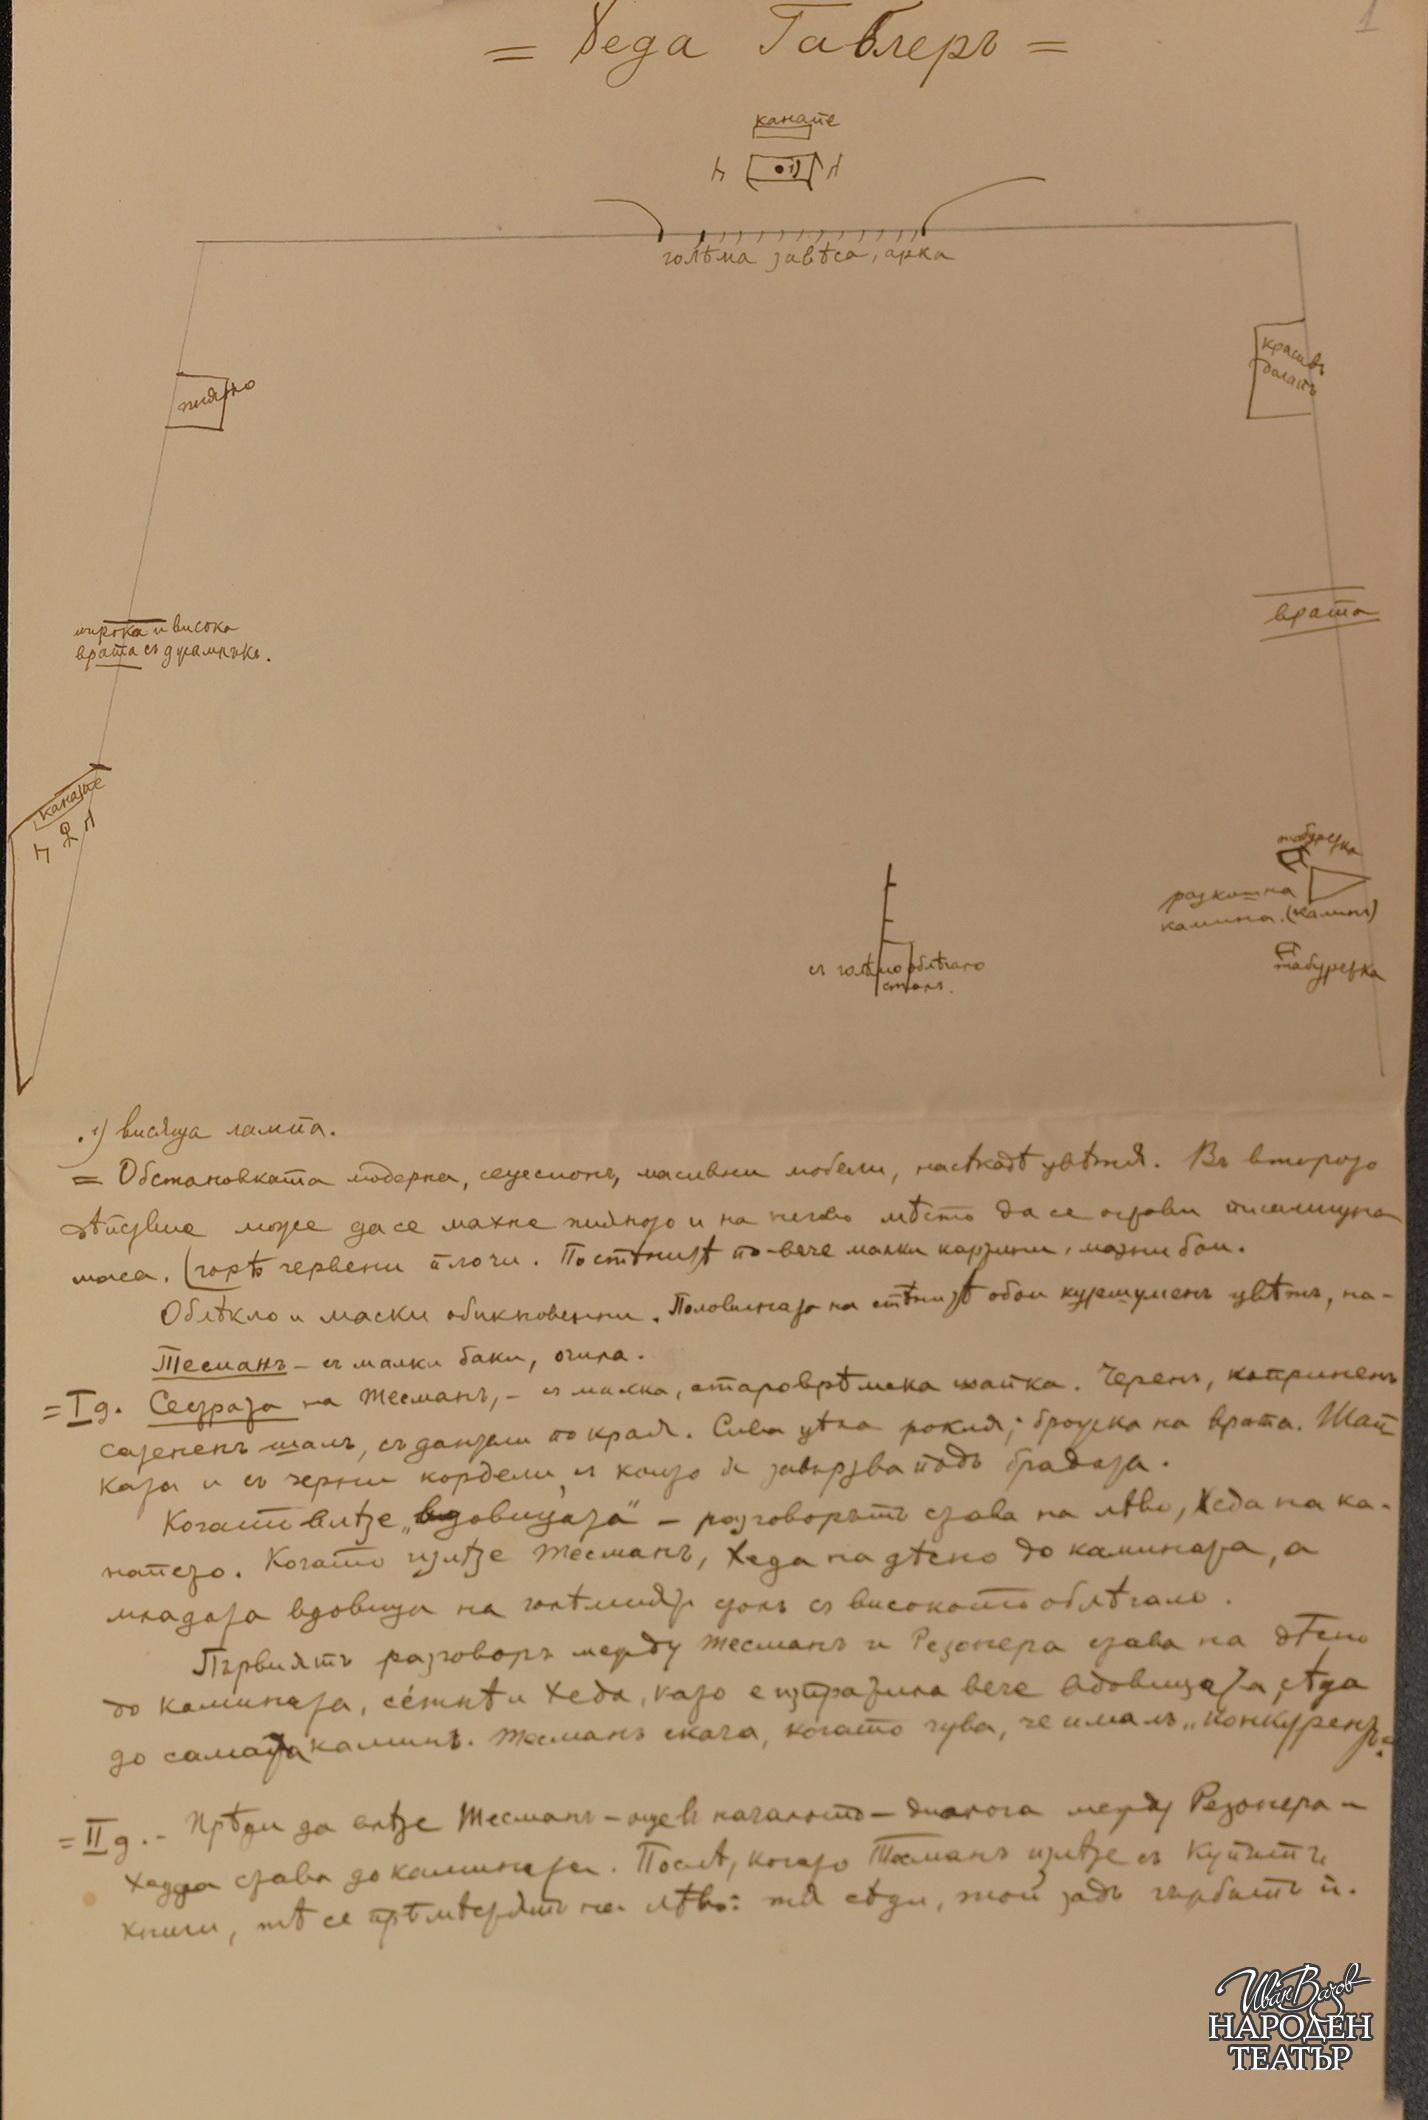 1
= Хеда Габлеръ =
канапе
1)
голѣма завѣса, арка
пияно
красивъ
долапъ
широка и висока
врата съ драмнъкъ.
врата
канапе
табуретка
разкошна
камина. (каминъ)
съ голѣмо облѣгало
столъ.
табуретка
.1) висяща лампа.
= Обстановката модерна, сецесионъ, масивни мобели, насѣкадѣ цвѣтя. Въ второто
дѣйствие може да се махне пияното и на негово мѣсто да се остави писалищна
маса. (горѣ червени плочи. По стѣнитѣ по-вече малки картини, мазни бои.
Облѣкло и маски обикновенни. Половината на стѣнитѣ обои куршуменъ цвѣтъ, на-
Тесманъ – съ малки баки, очила.
= I д. Сестрата на Тесманъ, – съ малка, старовремска шапка. Черенъ, коприненъ
сатененъ шалъ, съ дантели по края. Сива цѣла рокля; брошка на врата. Шап
ката и съ черни кордели, съ които я завързва подъ брадата.
Когато влѣзе „вдовицата" – разговорътъ става на лѣво, Хеда на ка-
напето. Когато излѣзе Тесманъ, Хеда на дѣсно до камината, а
младата вдовица на голѣмия столъ съ високото облѣгало.
Първиятъ разговоръ между Тесманъ и Резонера става на дѣсно
до камината, сетнѣ и Хеда, като е изпратила вече вдовицата, сѣда
до самата каминъ. Тесманъ скача, когато чува, че ималъ „конкурентъ".
= II д. – Прѣди да влѣзе Тесманъ – още въ началото – диалога между Резонера и
Хедда става до камината. Послѣ, когато Тесманъ излѣзе съ купътъ
книги, тѣ се прѣмѣстятъ на лѣво: тя сѣди, той задъ гърбътъ ѝ.
Иван Вазов
НАРОДЕН
ТЕАТЪР